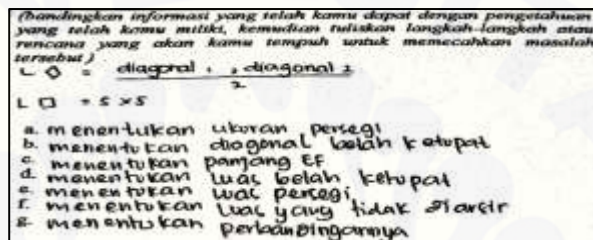 (bandingkan informasi yang telah kamu dapat dengan pengetahuan
yang telah kamu miliki, kemudian tuliskan langkah-langkah atau
rencana yang akan kamu tempuh untuk memecahkan masalah
tersebut)
L ◇ = diagonal 1 , diagonal 2
2
L □ = s × s
a. menentukan ukuran persegi
b. menentukan diagonal belah ketupat
c. menentukan panjang EF
d. menentukan luas belah ketupat
e. menentukan luas persegi
f. menentukan luas yang tidak diarsir
g. menentukan perbandingannya